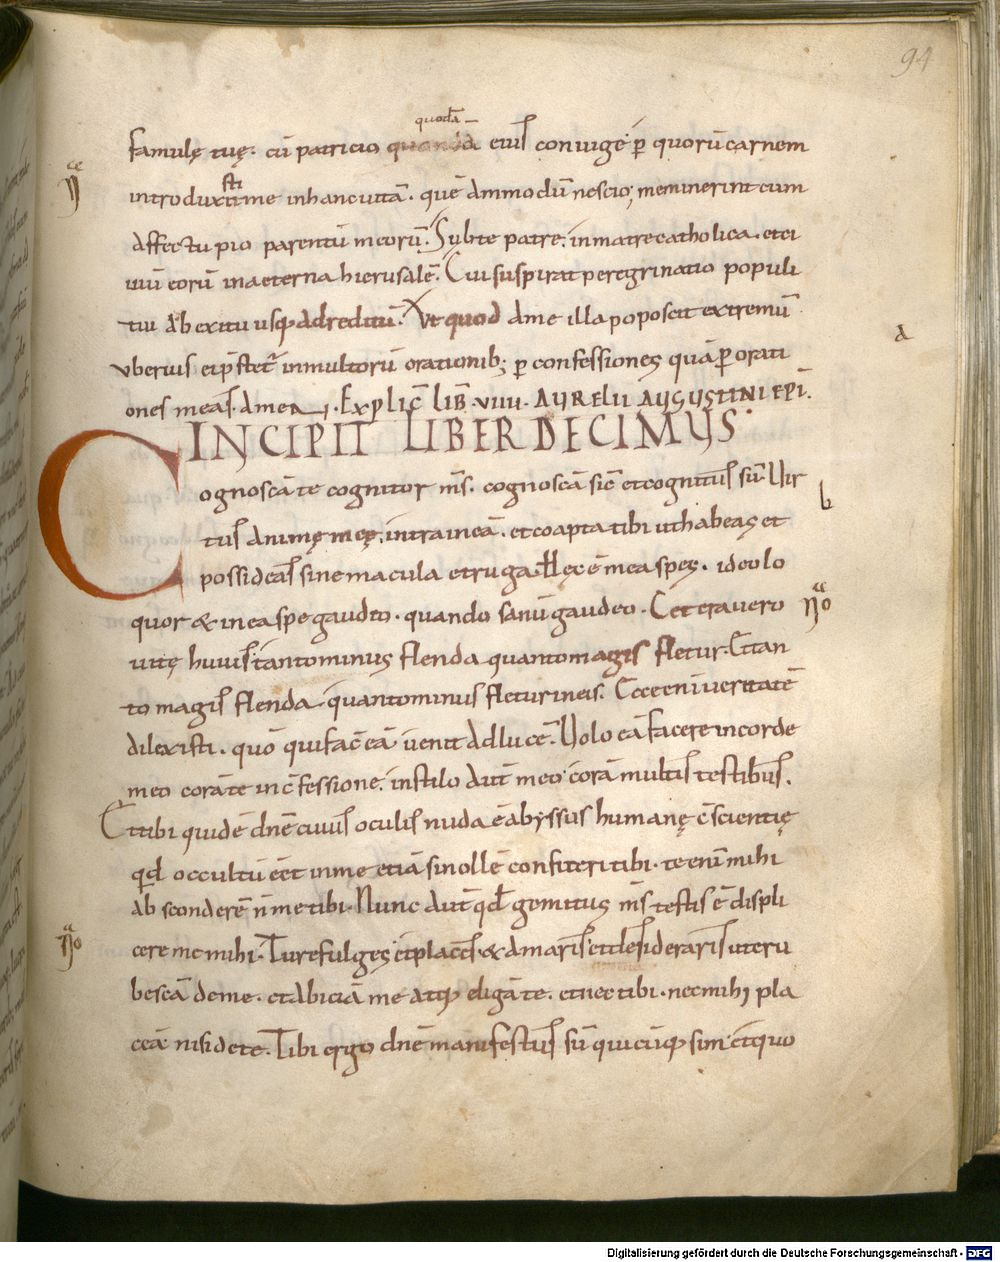 94
quodā
famulę tuę. cū patricio quondā eiuſ coniugē ꝑ quorū carnem
introduxiſti me in hanc uitā. quē ammodū nescio; meminerint cum
affectu pio parentū meorū. Sub te patre. in matre catholica. et ci
uiū eorū in aeterna hierusalē. Cui suspirat peregrinatio populi
tui ab exitu usq; ad reditū. Vt quod a me illa poposcit extremū
vberius ei p̄stet᷒ in multorū orationib; ꝑ confessiones quā ꝑ orati
ones meaſ. amen. Explic̄ lib̄ .viiii. AURELII AUGUSTINI EPĪ.
INCIPIT LIBER DECIMUS.
Cognoscā te cognitor m̄s. cognoscā sic̄ et cognituſ sū. Uir
tuſ animę męę. intra in eā. et coapta tibi ut habeas et
possideaſ sine macula et ruga. Hęc ē mea spes. ideo lo
quor & in ea spe gaudeo. quando sanū gaudeo. Cetera uero
uitę huiuſ tanto minus flenda quanto magiſ fletur. Et tan
to magiſ flenda. quanto minus fletur in eiſ. Ecce enī ueritatē
dilexisti. quō qui fac̄ eā uenit ad lucē. Uolo eā facere in corde
meo corā te in c̄fessione. in stilo aut̄ meo corā multiſ testibuſ.
Et tibi quidē dn̄e cuiuſ oculis nuda ē abyssus humanę c̄scientię
qd̄ occultū eēt in me etiā si nollē confiteri tibi. te enī mihi
absconderē n̄ me tibi. Nunc aut̄ qd̄ gemitus m̄s testis ē displi
cere me mihi. Tu refulges et placeſ. & amariſ et desiderariſ ut eru
bescā de me. et abiciā me atq; eligā te. et nec tibi. nec mihi pla
ceā nisi de te. Tibi ergo dn̄e manifestuſ sū quicūq; sim. et quo
a
b
Digitalisierung gefördert durch die Deutsche Forschungsgemeinschaft - DFG